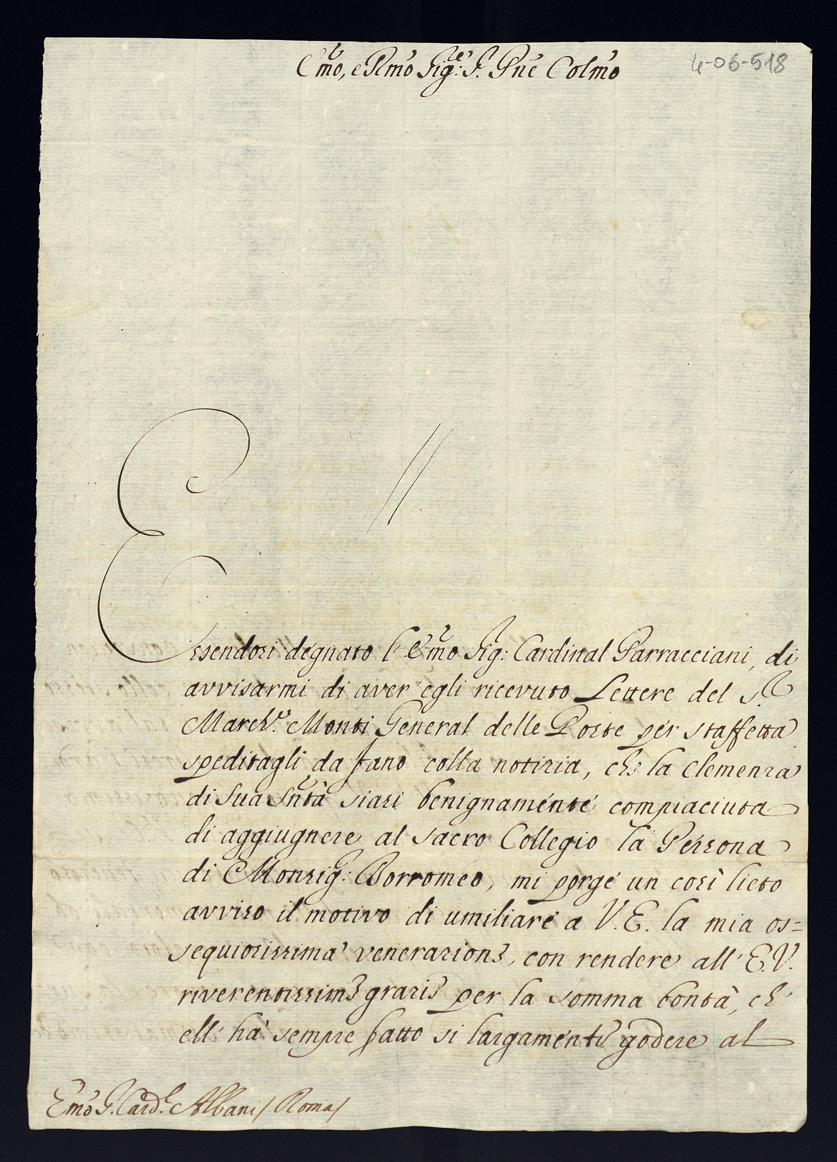 Em̃o, e Rm̃o Sig.re S. Pñe Colm̃o
4-06-518
Essendosi degnato l'Em̃o Sig: Cardinal Parracciani, di
avvisarmi di aver egli ricevuto Lettere del S.r
March.se Monti General delle Poste per staffetta
speditagli da Fano colla notizia, che la clemenza
di Sua Sñtà siasi benignamente compiaciuta
di aggiugnere al Sacro Collegio la Persona
di Monsig:r Borromeo, mi porge un così lieto
avviso il motivo di umiliare a V.E. la mia os=
sequiosissima venerazione, con rendere all'E.V.
riverentissime grazie per la somma bontà, ch'
ell'hà sempre fatto sì largamente godere al
Em̃o S. Card.l Albani / Roma /